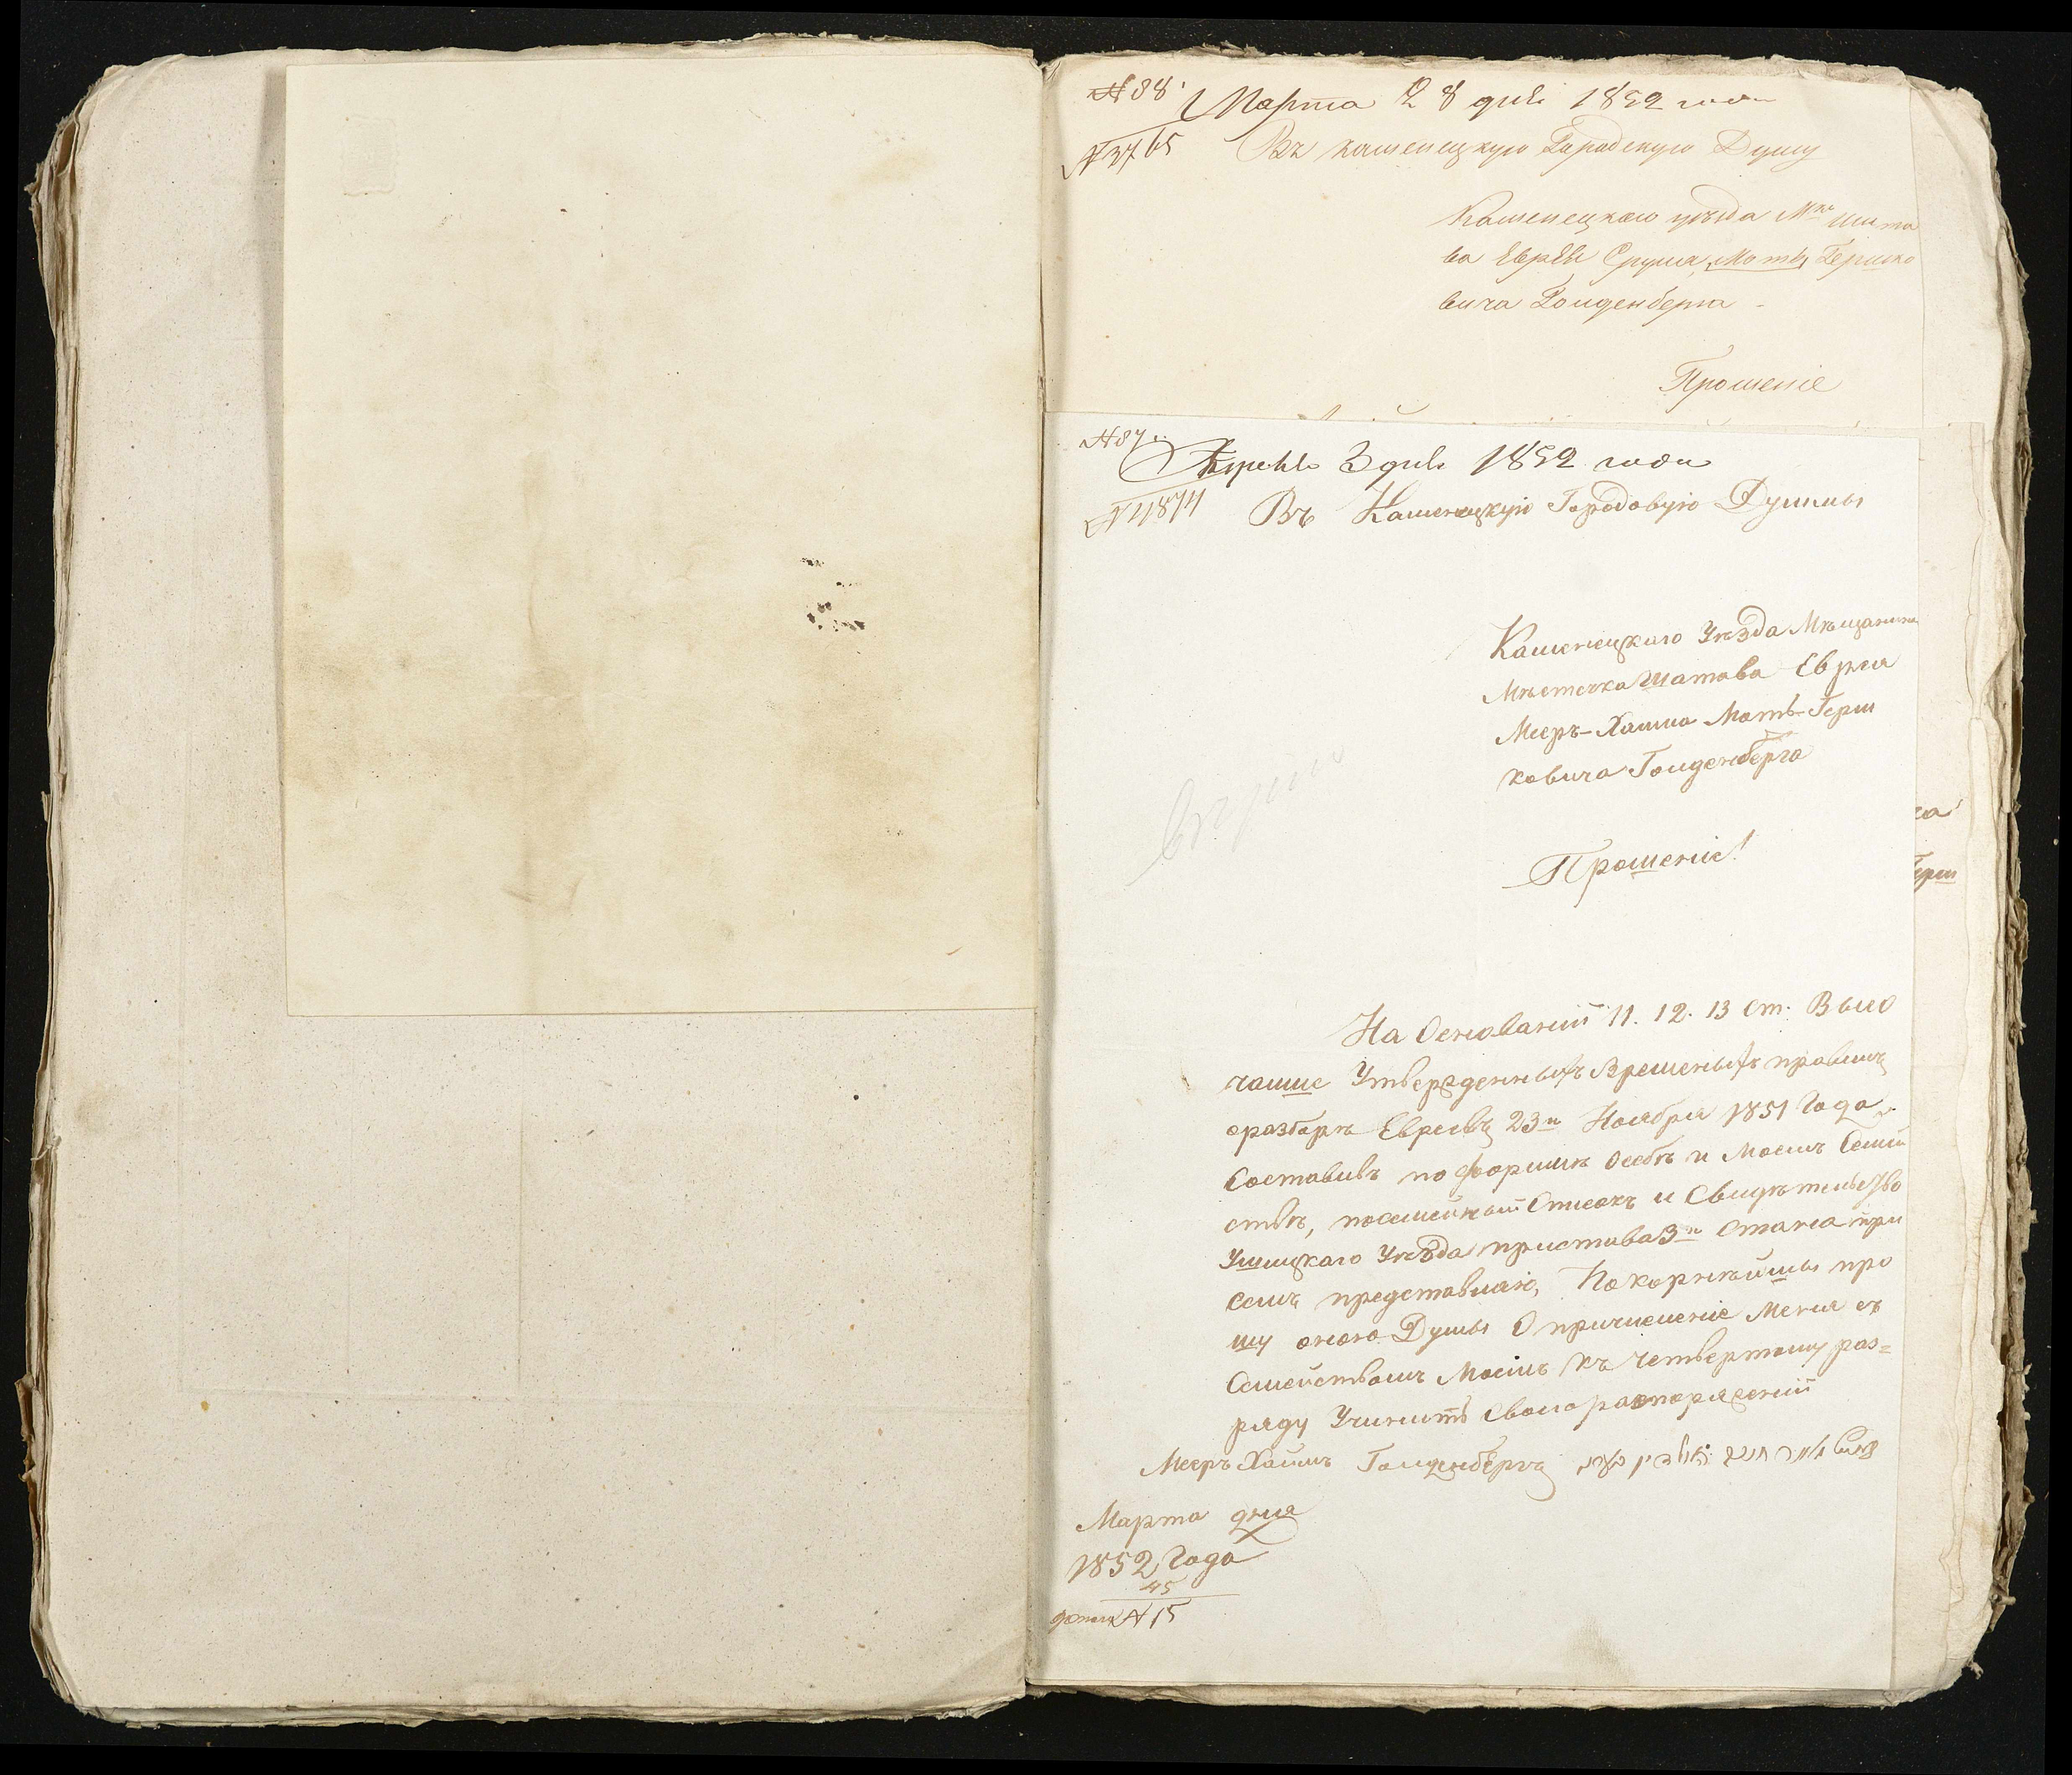 № 88.
Марта 28 дня 1852 года
№ 3765
Въ каменецкую Городскую Думу
Каменецкаго уѣзда Мка Шата
ва Еврѣя Срулия Моть Гершко
вича Гольденберга
Прошеніе
№ 87
Апрель 3 дня 1852 года
№ 4874
Въ Каменецкую Городовую Думмы
Каменецкаго Уезда Мѣщанина
Мѣстечка Шатава Еврея
Мееръ-Хаима Моть-Герш
ковича Гольденберга
Прошеніе!
На Основаніи 11. 12. 13 Ст. Высо
чаише Утвержденныхъ Временыхъ правилъ
оразборѣ Евреевъ 23го Ноября 1851 Года
Составивъ по формѣ Особѣ и Моемъ Семей
ствѣ, посемейный Списокъ и Свидѣтельство
Ушицкаго Уезда пристава 3го Стана при
семъ представляю, Покорнѣйшы про
шу оною Думы О причисленіе Меня съ
Семействомъ Моімъ къ Четвертому раз=
ряду Учинить Своло распоряженіи
Мееръ Хаимъ Гольденбергъ מאיר חיים
Марта дня
1852 Года
45
№ 15
ка
Герш